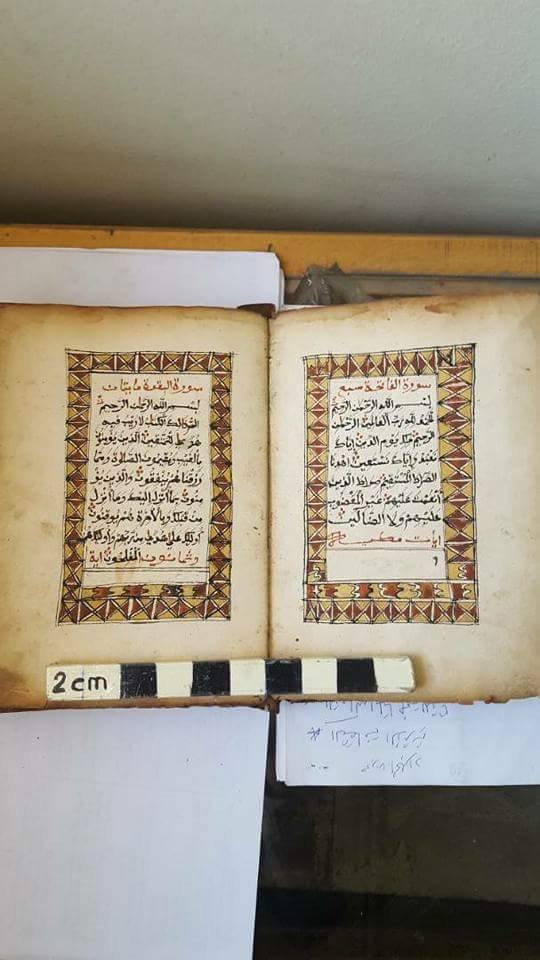 سورة الفاتحة سبع
بسم الله الرحمن الرحيم
الحمد لله رب العالمين الرحمن
الرحيم ملك يوم الدين إياك
نعبد وإياك نستعين اهدنا
الصراط المستقيم صراط الذين
أنعمت عليهم غير المغضوب
عليهم ولا الضالين
آيات مكية
سورة البقرة مايتان
بسم الله الرحمن الرحيم
الم ذلك الكتاب لا ريب فيه
هدى للمتقين الذين يؤمنون
بالغيب ويقيمون الصلوة ومما
رزقناهم ينفقون والذين يؤ
منون بما أنزل إليك وما أنزل
من قبلك وبالآخرة هم يوقنون
أولئك على هدى من ربهم وأولئك هم
وثمانون المفلحون آية
2 cm